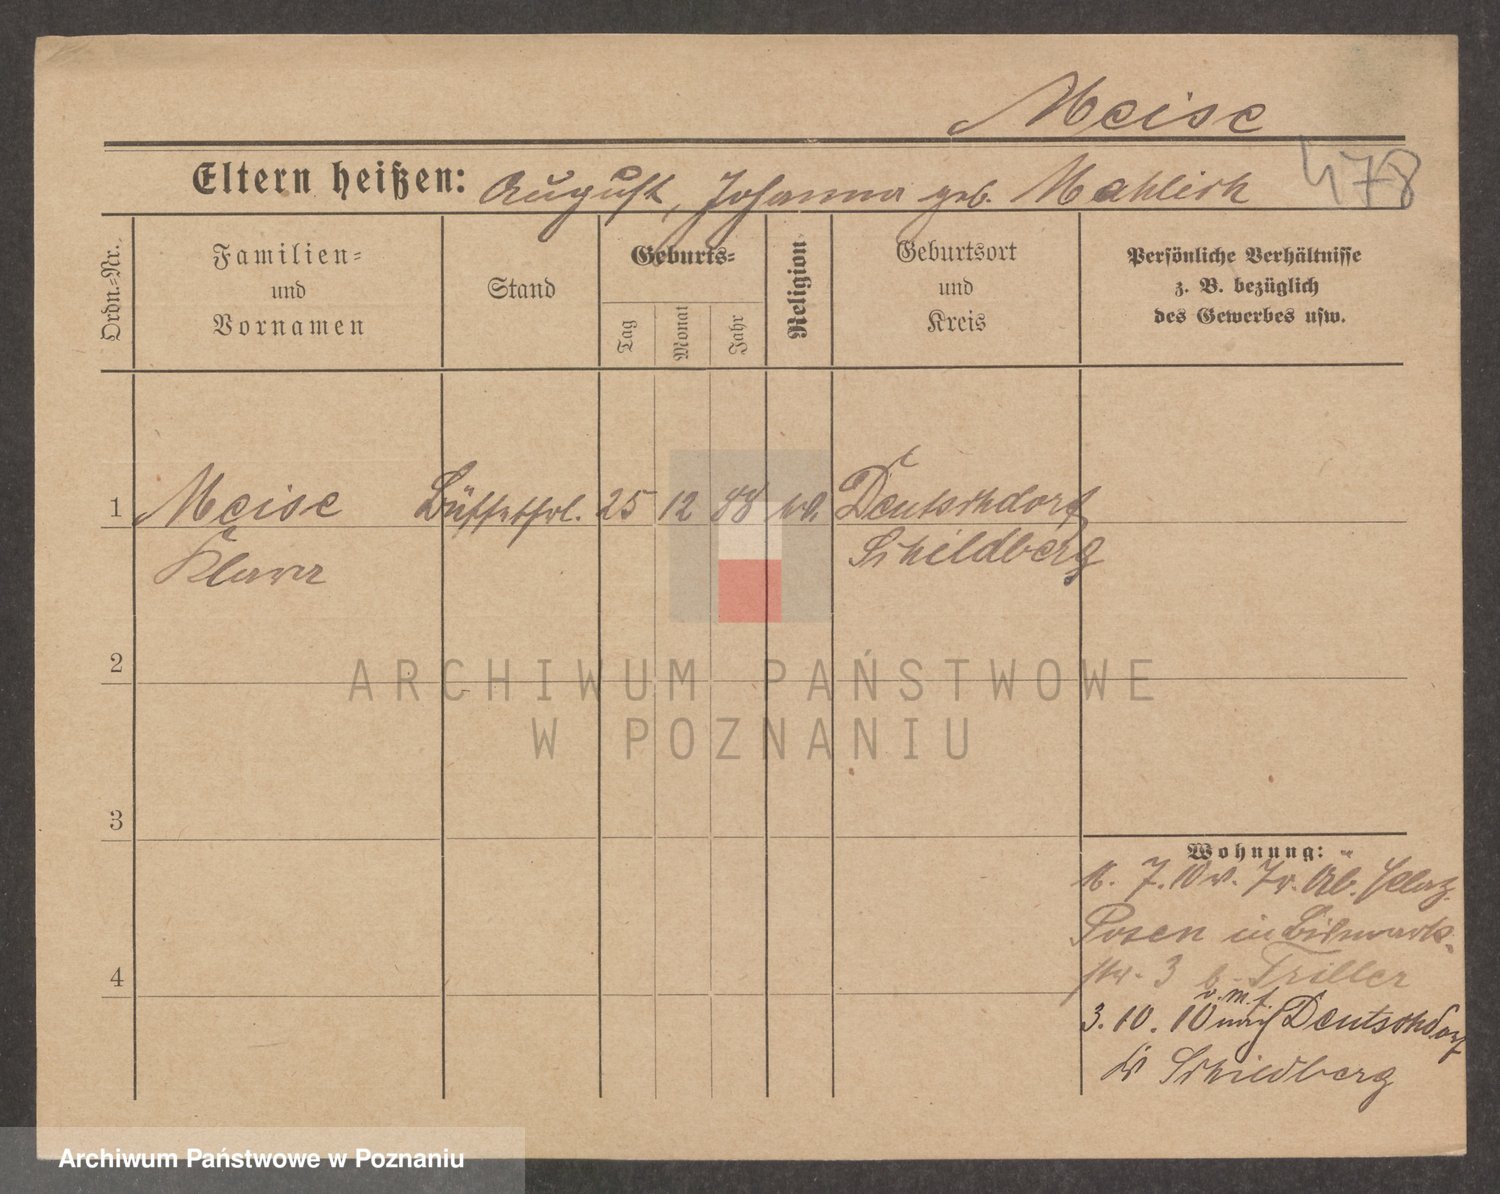 Meise
478
Eltern heißen: August, Johanna geb. Mahlich
Ordn.-Nr.
Familien-
und
Vornamen
Stand
Geburts-
Tag
Monat
Jahr
Religion
Geburtsort
und
Kreis
Persönliche Verhältnisse
z. B. bezüglich
des Gewerbes usw.
1 Meise Büffetfrl. 25 12 88 Deutschdorf
Klara Schildberg
2
3
4
ARCHIWUM PAŃSTWOWE
W POZNANIU
Wohnung:
7. 10 v.
Posen in Bismark-
str. 3 b. Triller
v. m. f.
3. 10. 10 nach Deutschdorf
Kr Schildberg
Archiwum Państwowe w Poznaniu